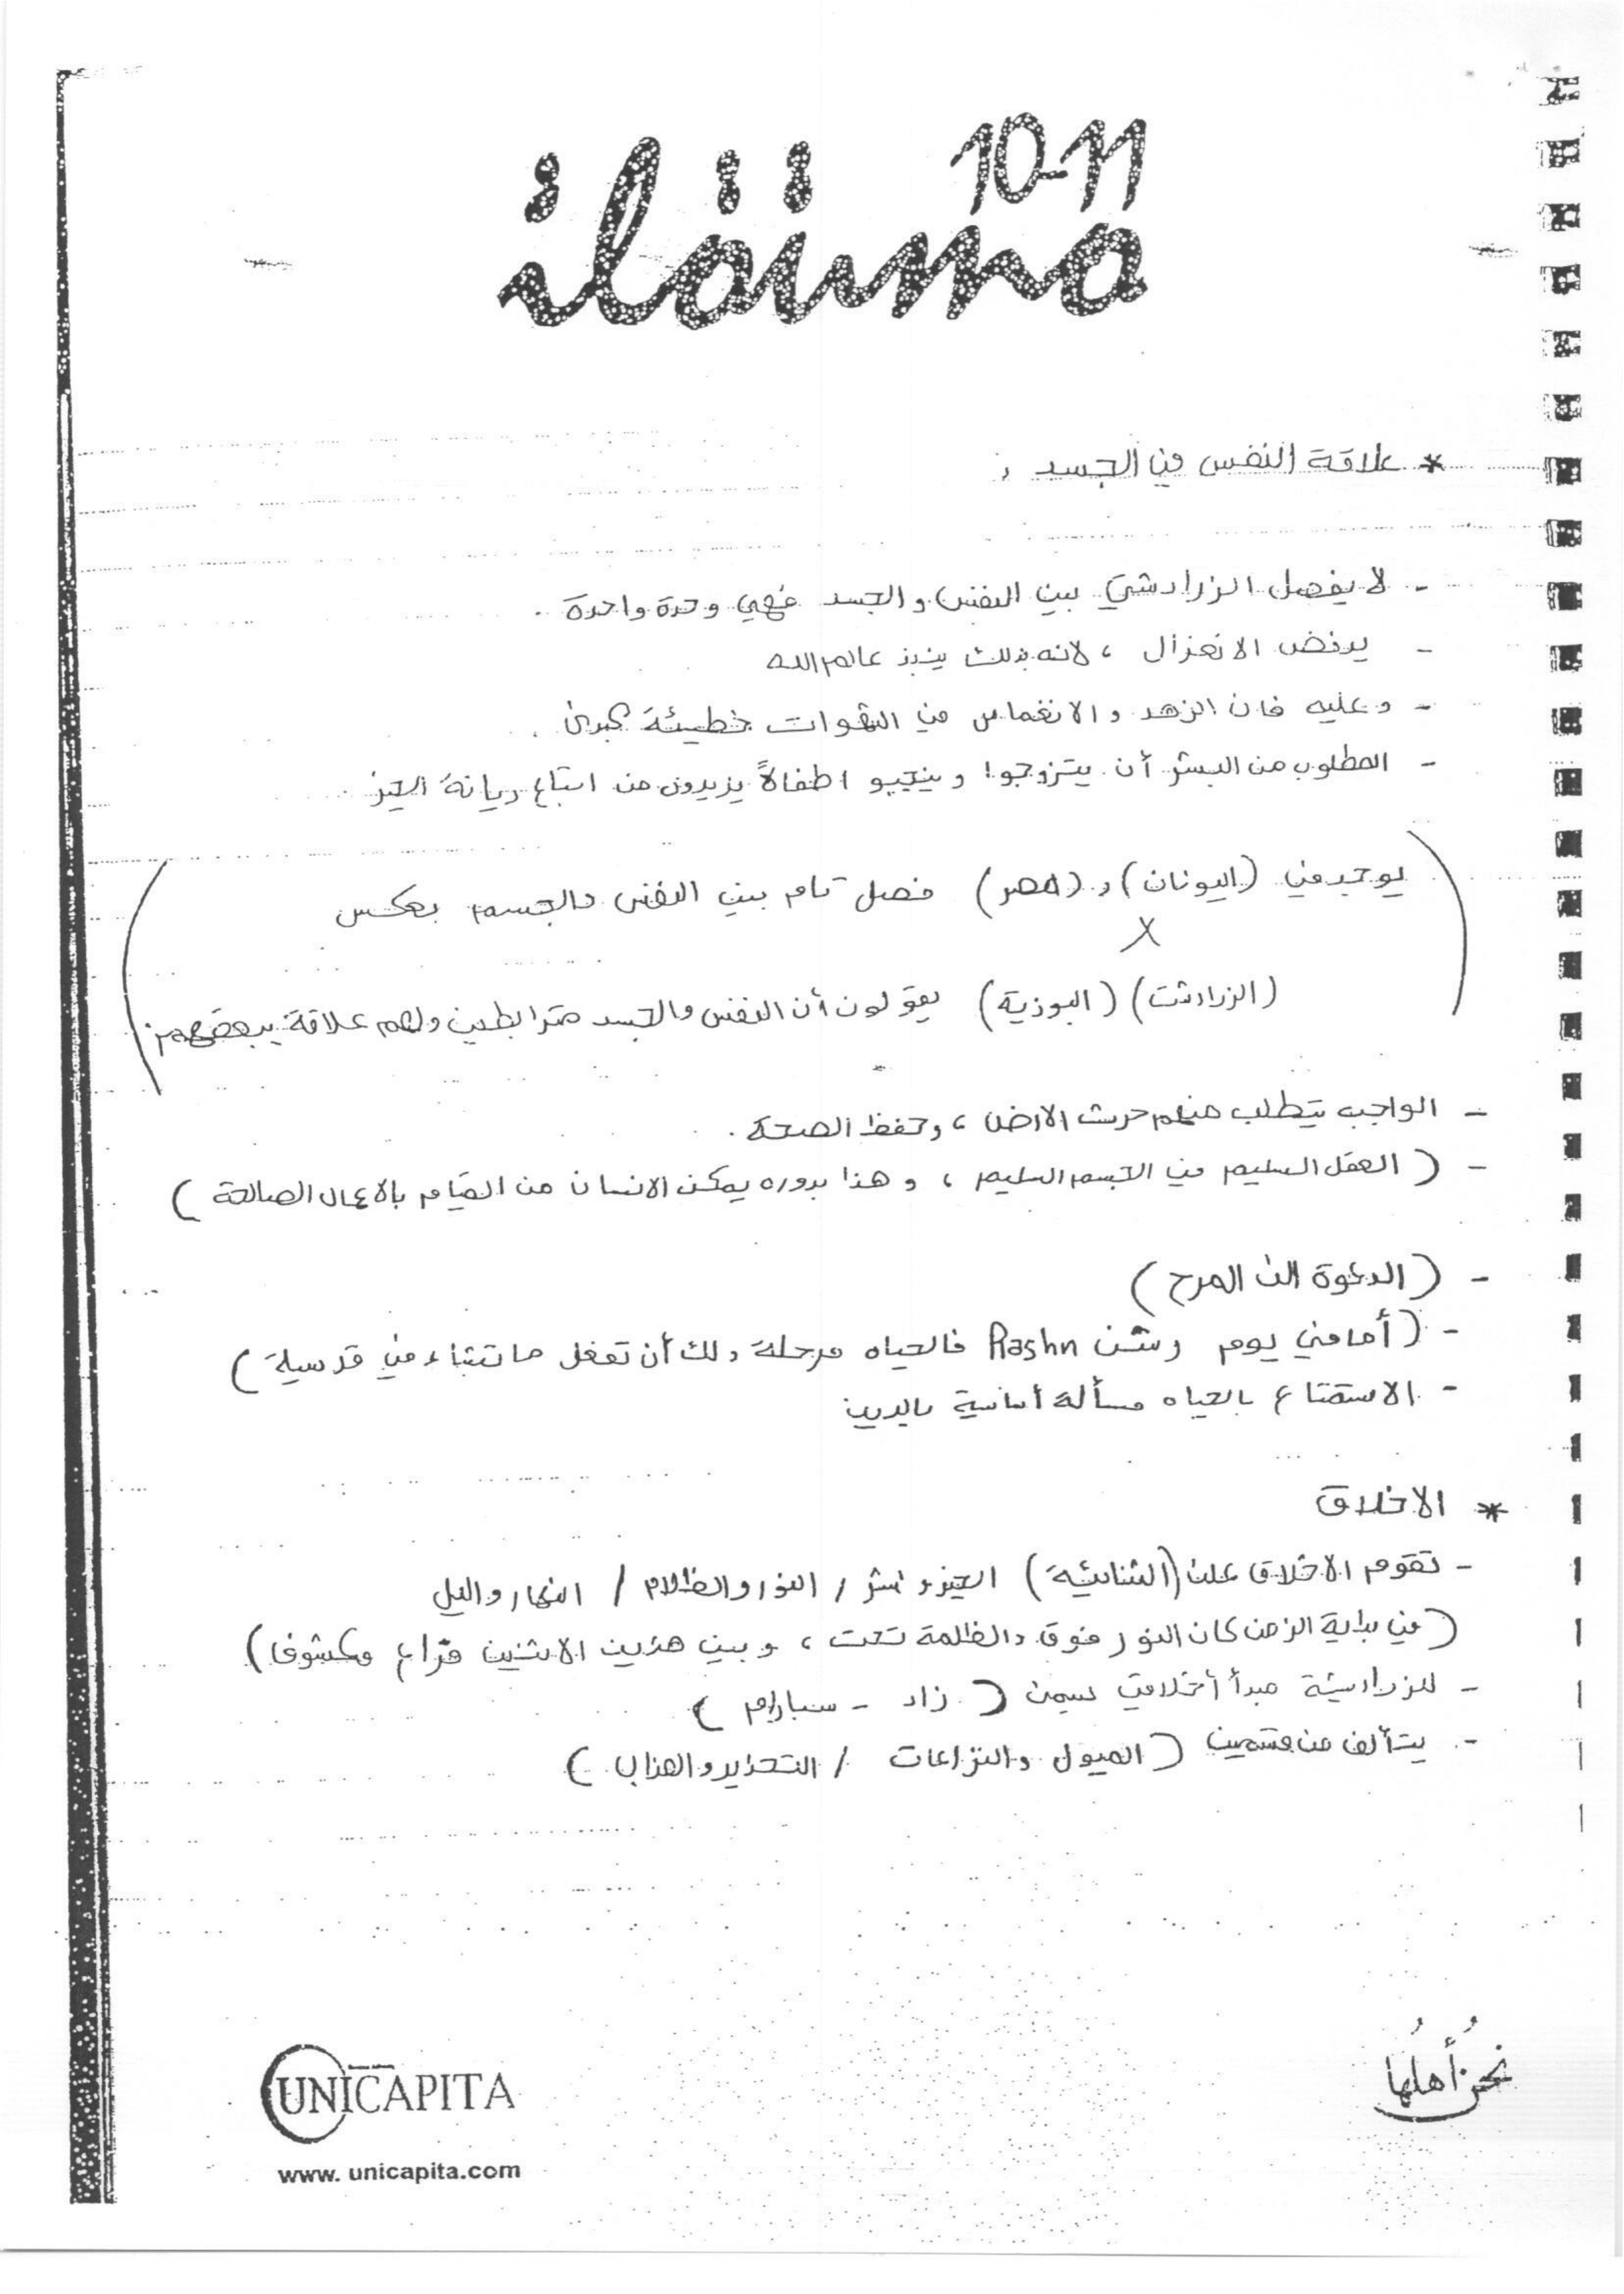 10-11
iloiima
* علاقة النفس في الجسد :
- لا يفصل الزرادشتي بين النفس والجسد فهي وحدة واحدة .
- يرفض الانعزال ، لانه بذلك ينبذ عالم الله
- وعليه فان الزهد والانغماس في الشهوات خطيئة كبرى .
- المطلوب من البشر أن يتزوجوا وينجبو اطفالاً يزيدون من اتباع ديانة الخير
يوجد في (اليونان) و (مصر) فصل تام بين النفس والجسم بعكس
X
(الزرادشت) (البوذية) يقولون أن النفس والجسد مترابطين ولهم علاقة ببعضهم
- الواجب يتطلب منهم حرث الارض ، وحفظ الصحة .
- (العقل السليم في الجسم السليم ، وهذا بدوره يمكن الانسان من القيام بالاعمال الصالحة)
- (الدعوة الى المرح)
- (أما في يوم رشن Rashn فالحياه مرحلة ولك أن تفعل ما تشاء في قدسية)
- الاستمتاع بالحياه مسألة أساسية بالدين
* الاخلاق
- تقوم الاخلاق على (الثنائية) الخير و شر / النور والظلام / النهار والليل
(في بداية الزمن كان النور فوق والظلمة تحت ، وبين هذين الاثنين فراغ مكشوفا)
- للزرادشتية مبدأ أخلاقي يسمى (زاد - سبارام)
- يتألف من قسمين (الميول والنزاعات / التحذير والعذاب)
نحن أهلها
UNICAPITA
www. unicapita.com